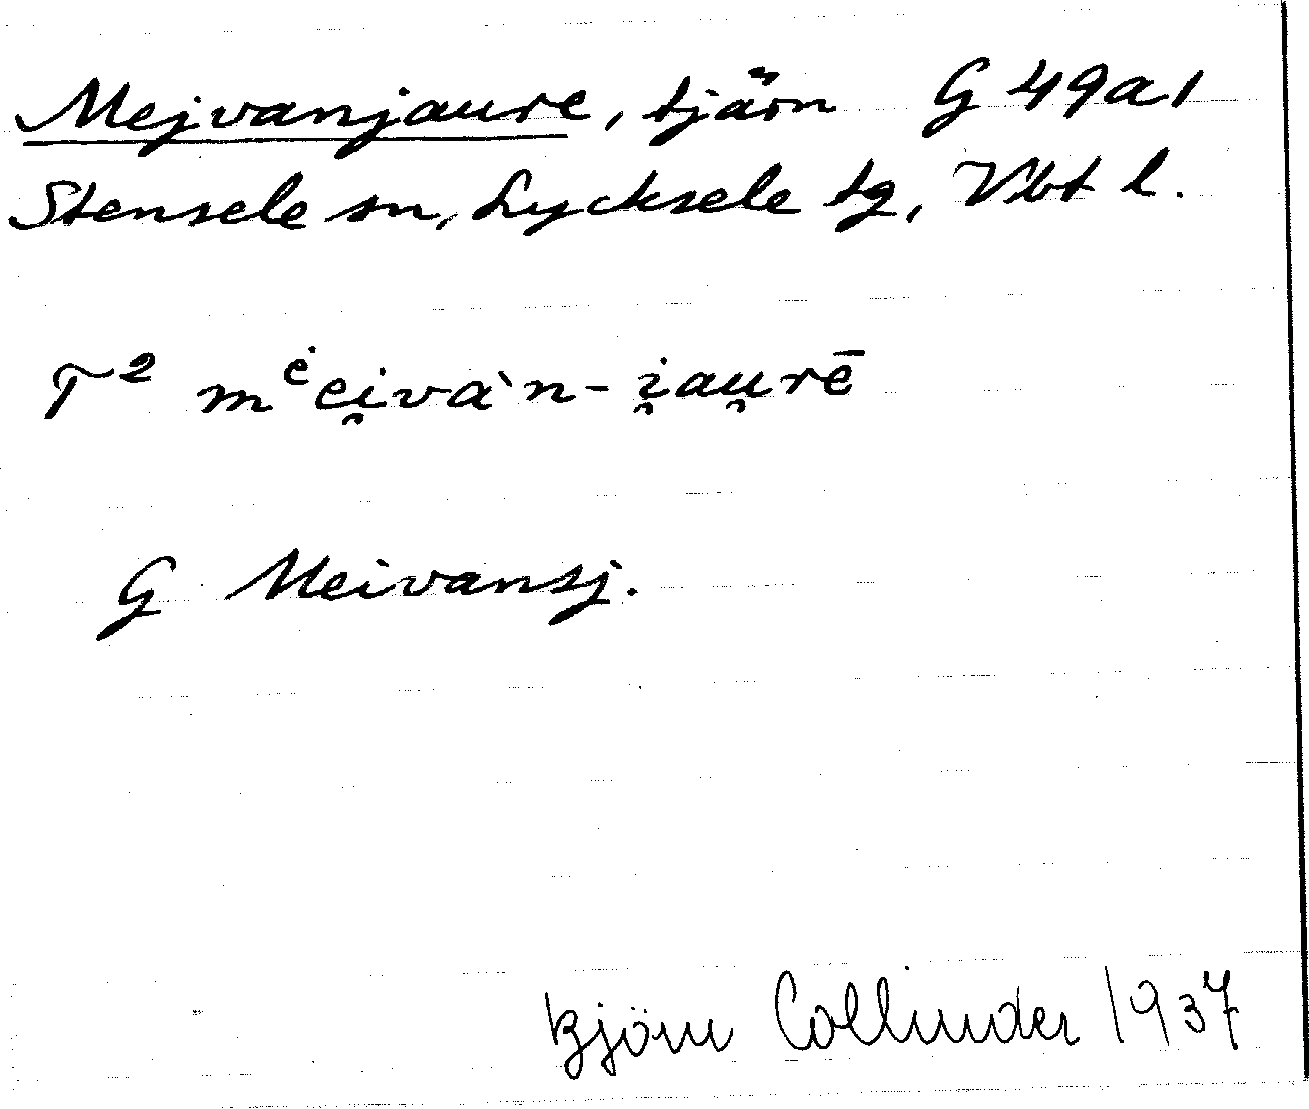 Mejvanjaure, tjärn G 49a1
Stensele sn, Lycksele tg, Vbt l.
T² mᵉ̇ei̯vàn-i̯au̯rē
G Meivansj.
Björn Collinder 1937